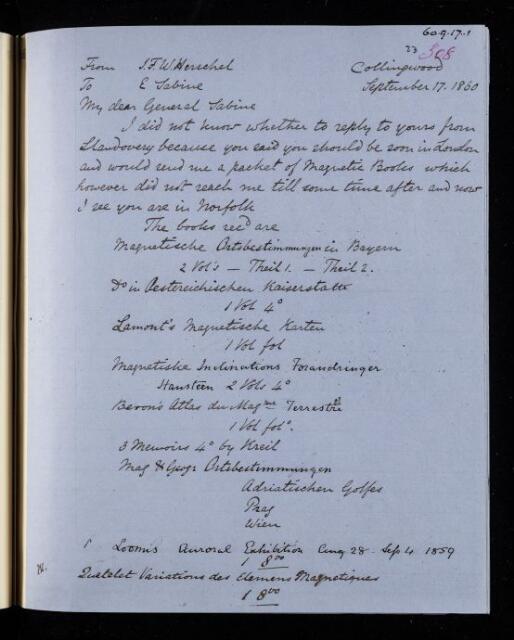 60.9.17.1
23 308
From J.F.W Herschel Collingwood
To E Sabine September 17. 1860
My dear General Sabine
I did not know whether to reply to yours from
Llandovery because you said you should be soon in London
and would send me a packet of Magnetic Books which
however did not reach me till some time after and now
I see you are in Norfolk
The books recd are
Magnetische Ortsbestimmungen in Bayern
2 Vol's — Theil 1. — Theil 2.
Do in Oestereichischen Kaiserstatte
1 Vol 4o
Lamont's Magnetische Karten
1 Vol fol
Magnetiske Inclinations Forandringer
Hansteen 2 Vols 4o
Beron's Atlas du Magme Terrestre
1 Vol folo.
3 Memoirs 4o by Kreil
Mag & Geogr Ortsbestimmungen
Adriatischen Golfes
Prag
Wien
1 Loomis Auroral Exhibition Aug 28 - Sep 4 1859
1 8vo
Quetelet Variations des Elemens Magnetiques
1 8vo